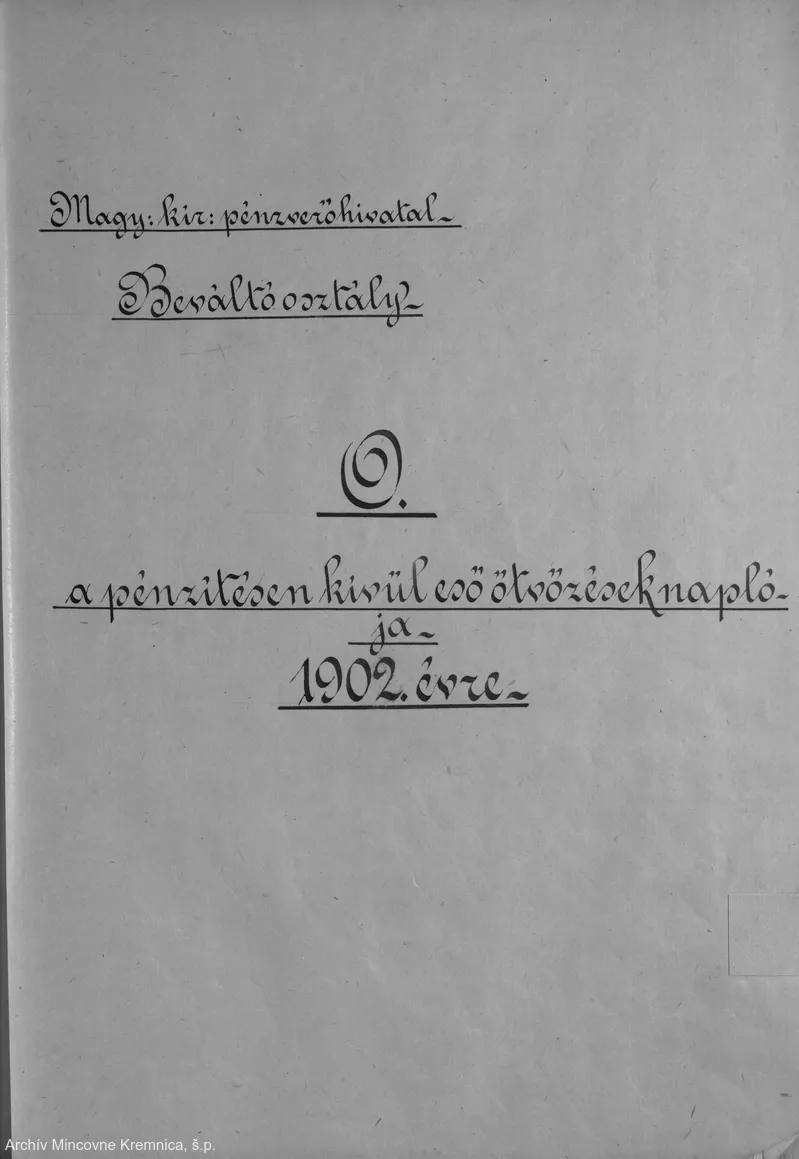 Magy: kir: pénzverőhivatal
Beváltó osztály
O.
a pénzitésen kivül eső ötvözések napló-
ja
1902. évre
Archív Mincovne Kremnica, š.p.